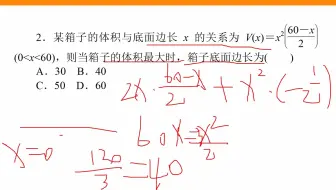 2．某箱子的体积与底面边长 x 的关系为 V(x)＝x²(60－x/2)
(0<x<60)，则当箱子的体积最大时，箱子底面边长为(　　)
A．30　B．40
C．50　D．60
2x · 60-x/2 + x² · (-1/2)
60x = 3x²/2
x=0
120/3 = 40